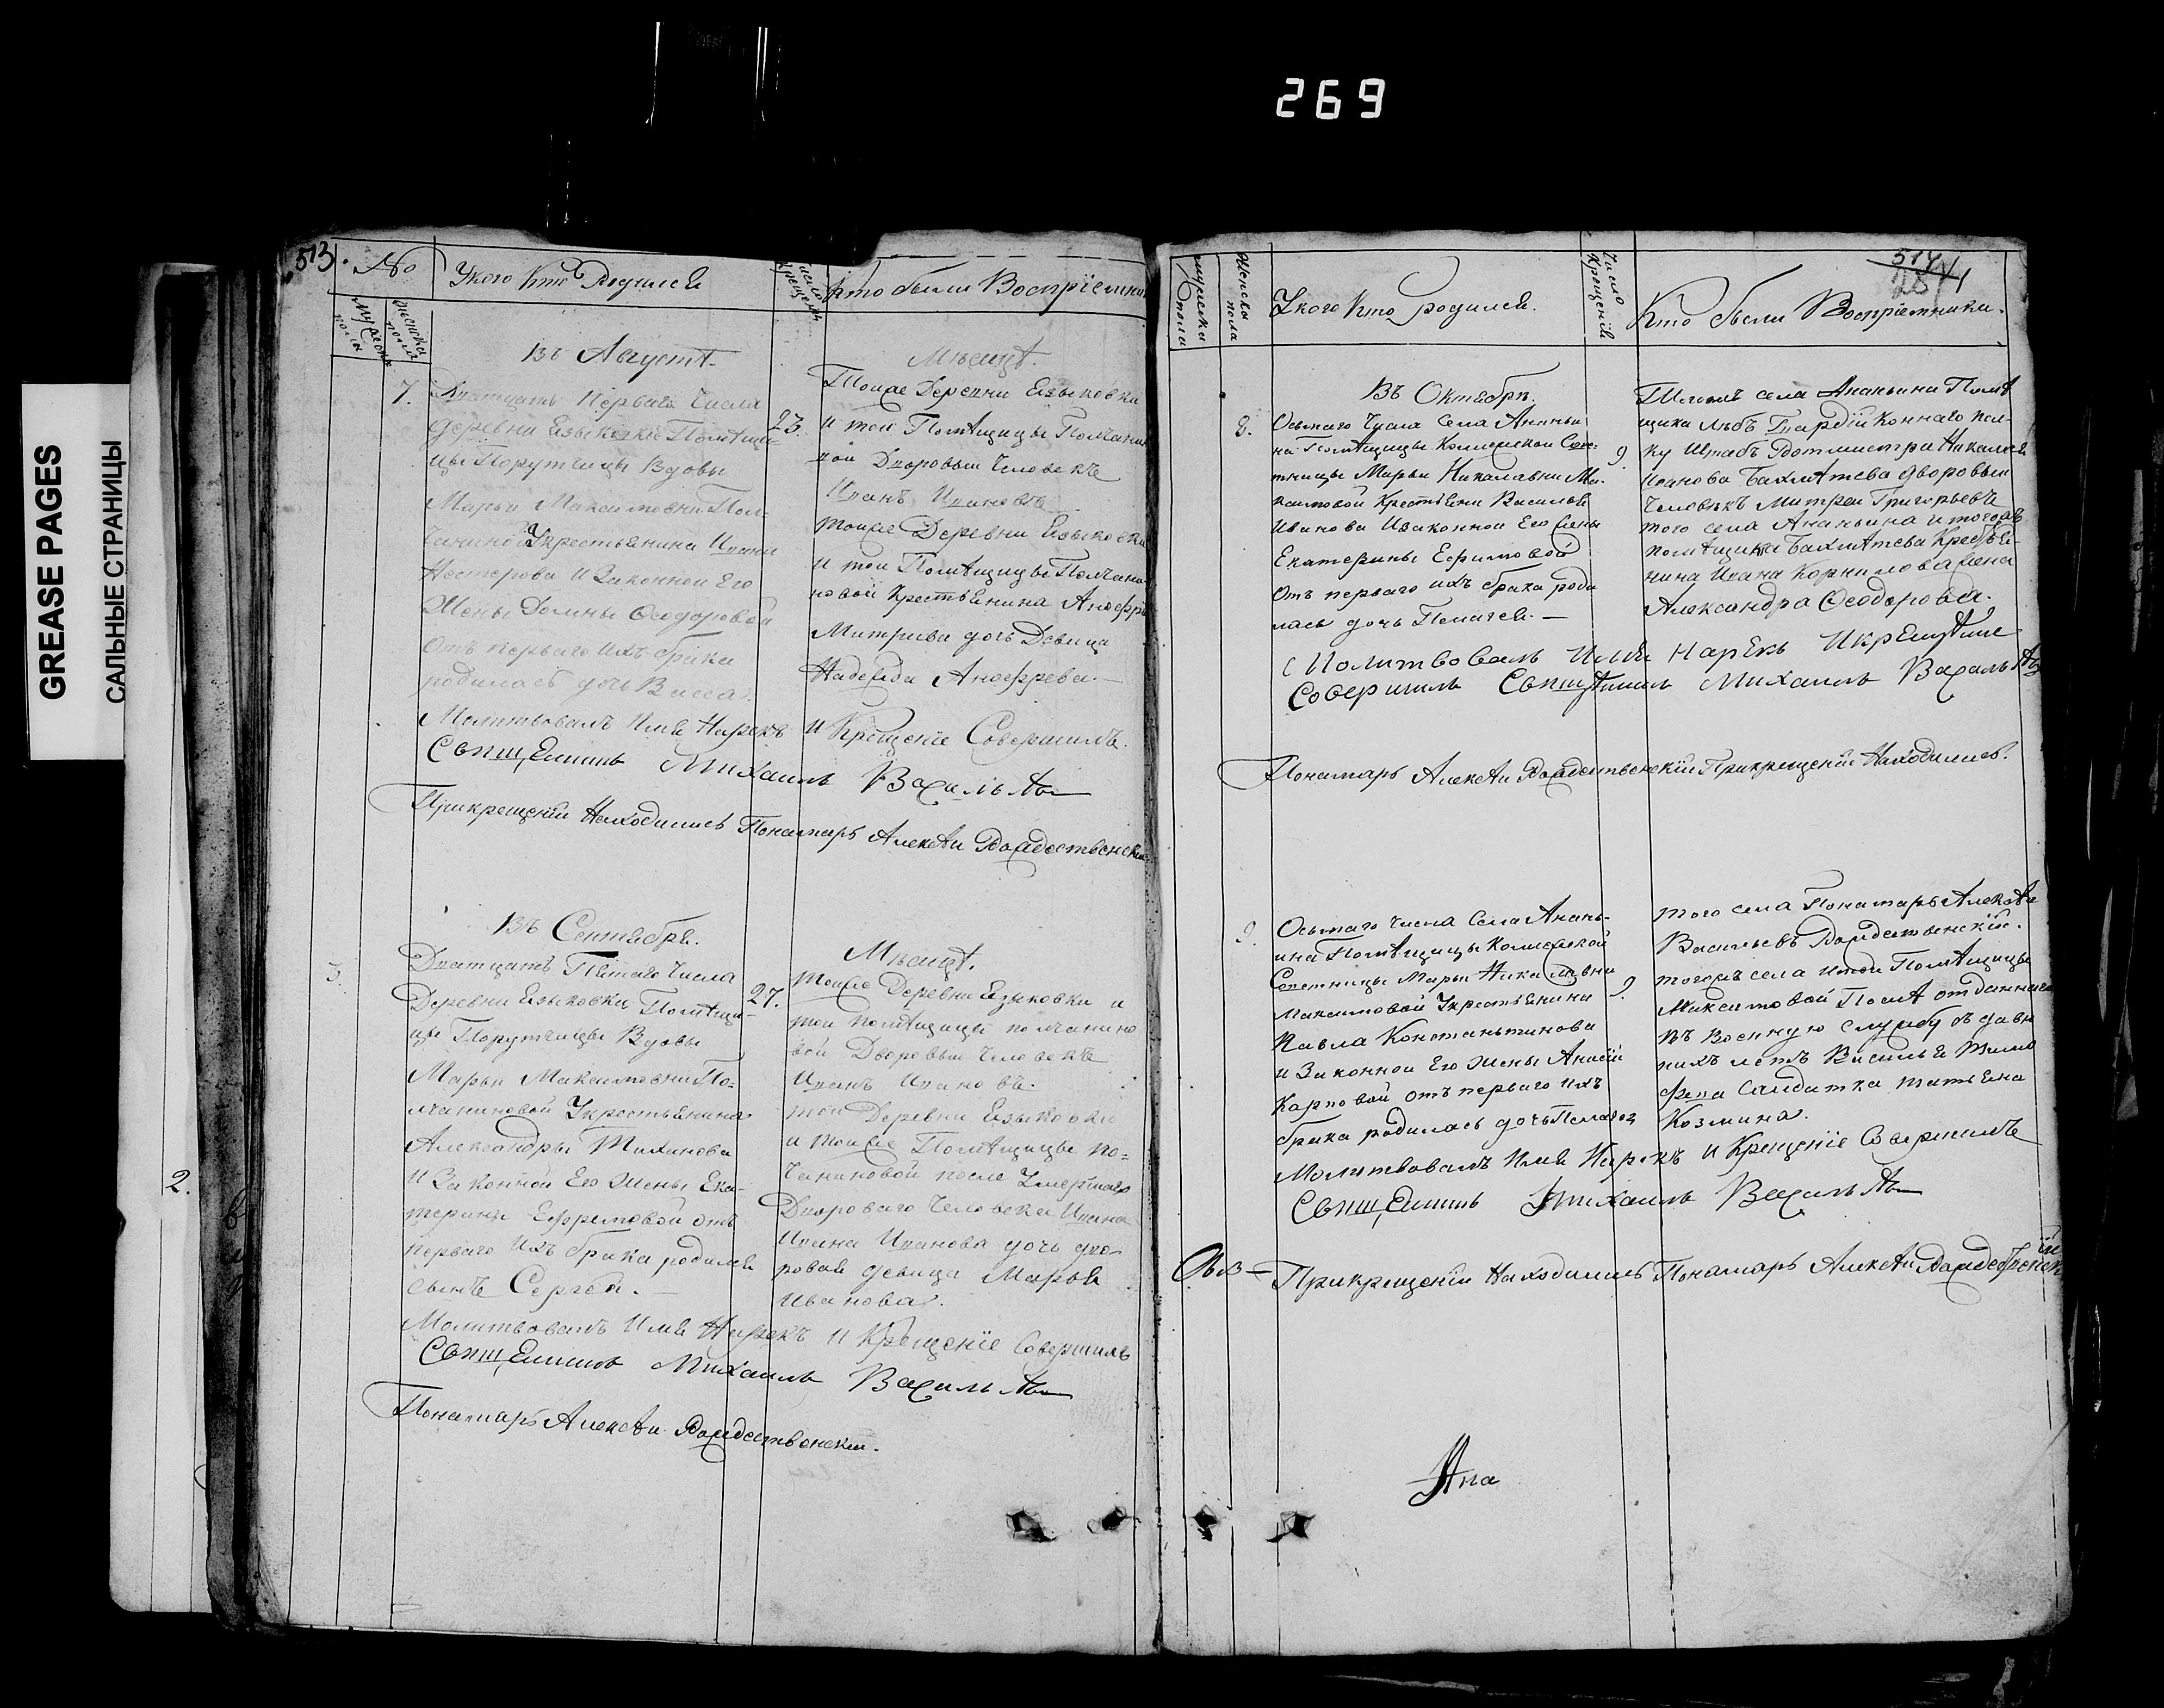 269
GREASE PAGES
САЛЬНЫЕ СТРАНИЦЫ
2.
513.
№
У кого Кто Родился
Число Крещенія
Кто были Воспріемники
Мужеска пола
Женска пола
Въ Августѣ
Мѣсяцѣ.
7.
Дватцать Перваго Числа
Деревни Языковки Помѣщи-
цы Порутчицы Вдовы
Марьи Максимовны Пол-
чаниной Укрестьянина Ивана
Нестерова И Законной Его
Жены Домны Ѳеодоровой
Отъ перваго Ихъ брака
родилась дочь Васса.
23.
Тоиже Деревни Языковки
И тои Помѣщицы Полчани
Дворовыи Человекъ
Иванъ Ивановъ
Тоиже Деревни Языковки
И тои Помѣщицы Полчани-
новой Крестьянина Анофрія
Митріева дочь Девица
Надежда Анофрева.—
Молитвовалъ Имя Нарекъ И Крещеніе Совершилъ.
Священникъ Михаилъ Васильѣвъ
Прикрещеніи Находились Понамарь Алексѣи Рождественскіи
Въ Сентябрѣ.
Мѣсяцѣ.
3.
Дватцать Пятаго Числа
Деревни Языковки Помѣщи-
цы Порутчицы Вдовы
Марьи Максимовны По-
лчаниновой Укрестьянина
Александры Тихинова
И Законной Его Жены Ека-
терины Ефремовой отъ
перваго Ихъ брака родился
сынъ Сергей.—
27.
Тоиже Деревни Языковки и
тои помѣщицы полчанино
вой Дворовыи Человекъ
Иванъ Ивановъ.
тои Деревни Языковки
и тоиже Помѣщицы по=
чаниновой после Умершаго
Двороваго Человека Ивана
Ивана Иванова дочь дво-
ровая девица Марья
Иванова.
Молитвовалъ Имя Нарекъ И Крещеніе Совершилъ
Священникъ Михаилъ Васильѣвъ
Понамарь Алексѣи Рождественскіи.
514
Мужеска пола
Женска пола
У кого Кто родился.
Число Крещенія
Кто были Воспріемники.
Въ Октябрѣ.
8.
Осьмаго Числа Села Ананьи
на Помѣщицы Колежскои Сове-
тницы Марьи Николавны Ма-
ксимовой Крестьяни Василья
Иванова Изаконной Его Жены
Екатерины Ефимовой
Отъ перваго ихъ брака роди
лась дочь Пелагея.—
9
Тогожъ села Ананьина Помѣ
щика Лѣбъ Гвардіи Коннаго пол-
ку Штабъ Ротмистра Николая
Иванова Бахмѣтева дворовыи
Человѣкъ Митреи Григорьевъ
того села Ананьина и тогожъ
помѣщика Бахмѣтева Кресьтя-
нина Ивана Корнилова жена
Александра Ѳеодорова.
Молитвовалъ Имя Нарекъ И Крещѣние
Совершилъ Священникъ Михаилъ Васильѣвъ
Понамарь Алексѣи Рождественскіи Прикрещеніи Находились.
9.
Осьмаго Числа Села Анань-
ина Помѣщицы Колежской
Советницы Марьи Николавны
Максимовой Укрестьянина
Павла Констаньтинова
и Законной Его Жены Анисіи
Карповой отъ перваго ихъ
брака родилась дочь Пелагея
9.
того села Понамарь Алексѣи
Васильевъ Рождественскіи.
тогожъ села итои Помѣщицы
Максимовой Послѣ отданнаго
въ Военную службу съ давн
нихъ летъ Василья Тимо
фева Салдатка татьяна
Козмина.
Молитвовалъ Имя Нарекъ И Крещеніе Совершилъ
Священникъ Михаилъ Васильѣвъ
Прикрещеніи Находились Понамарь Алексѣи Рождественскіи